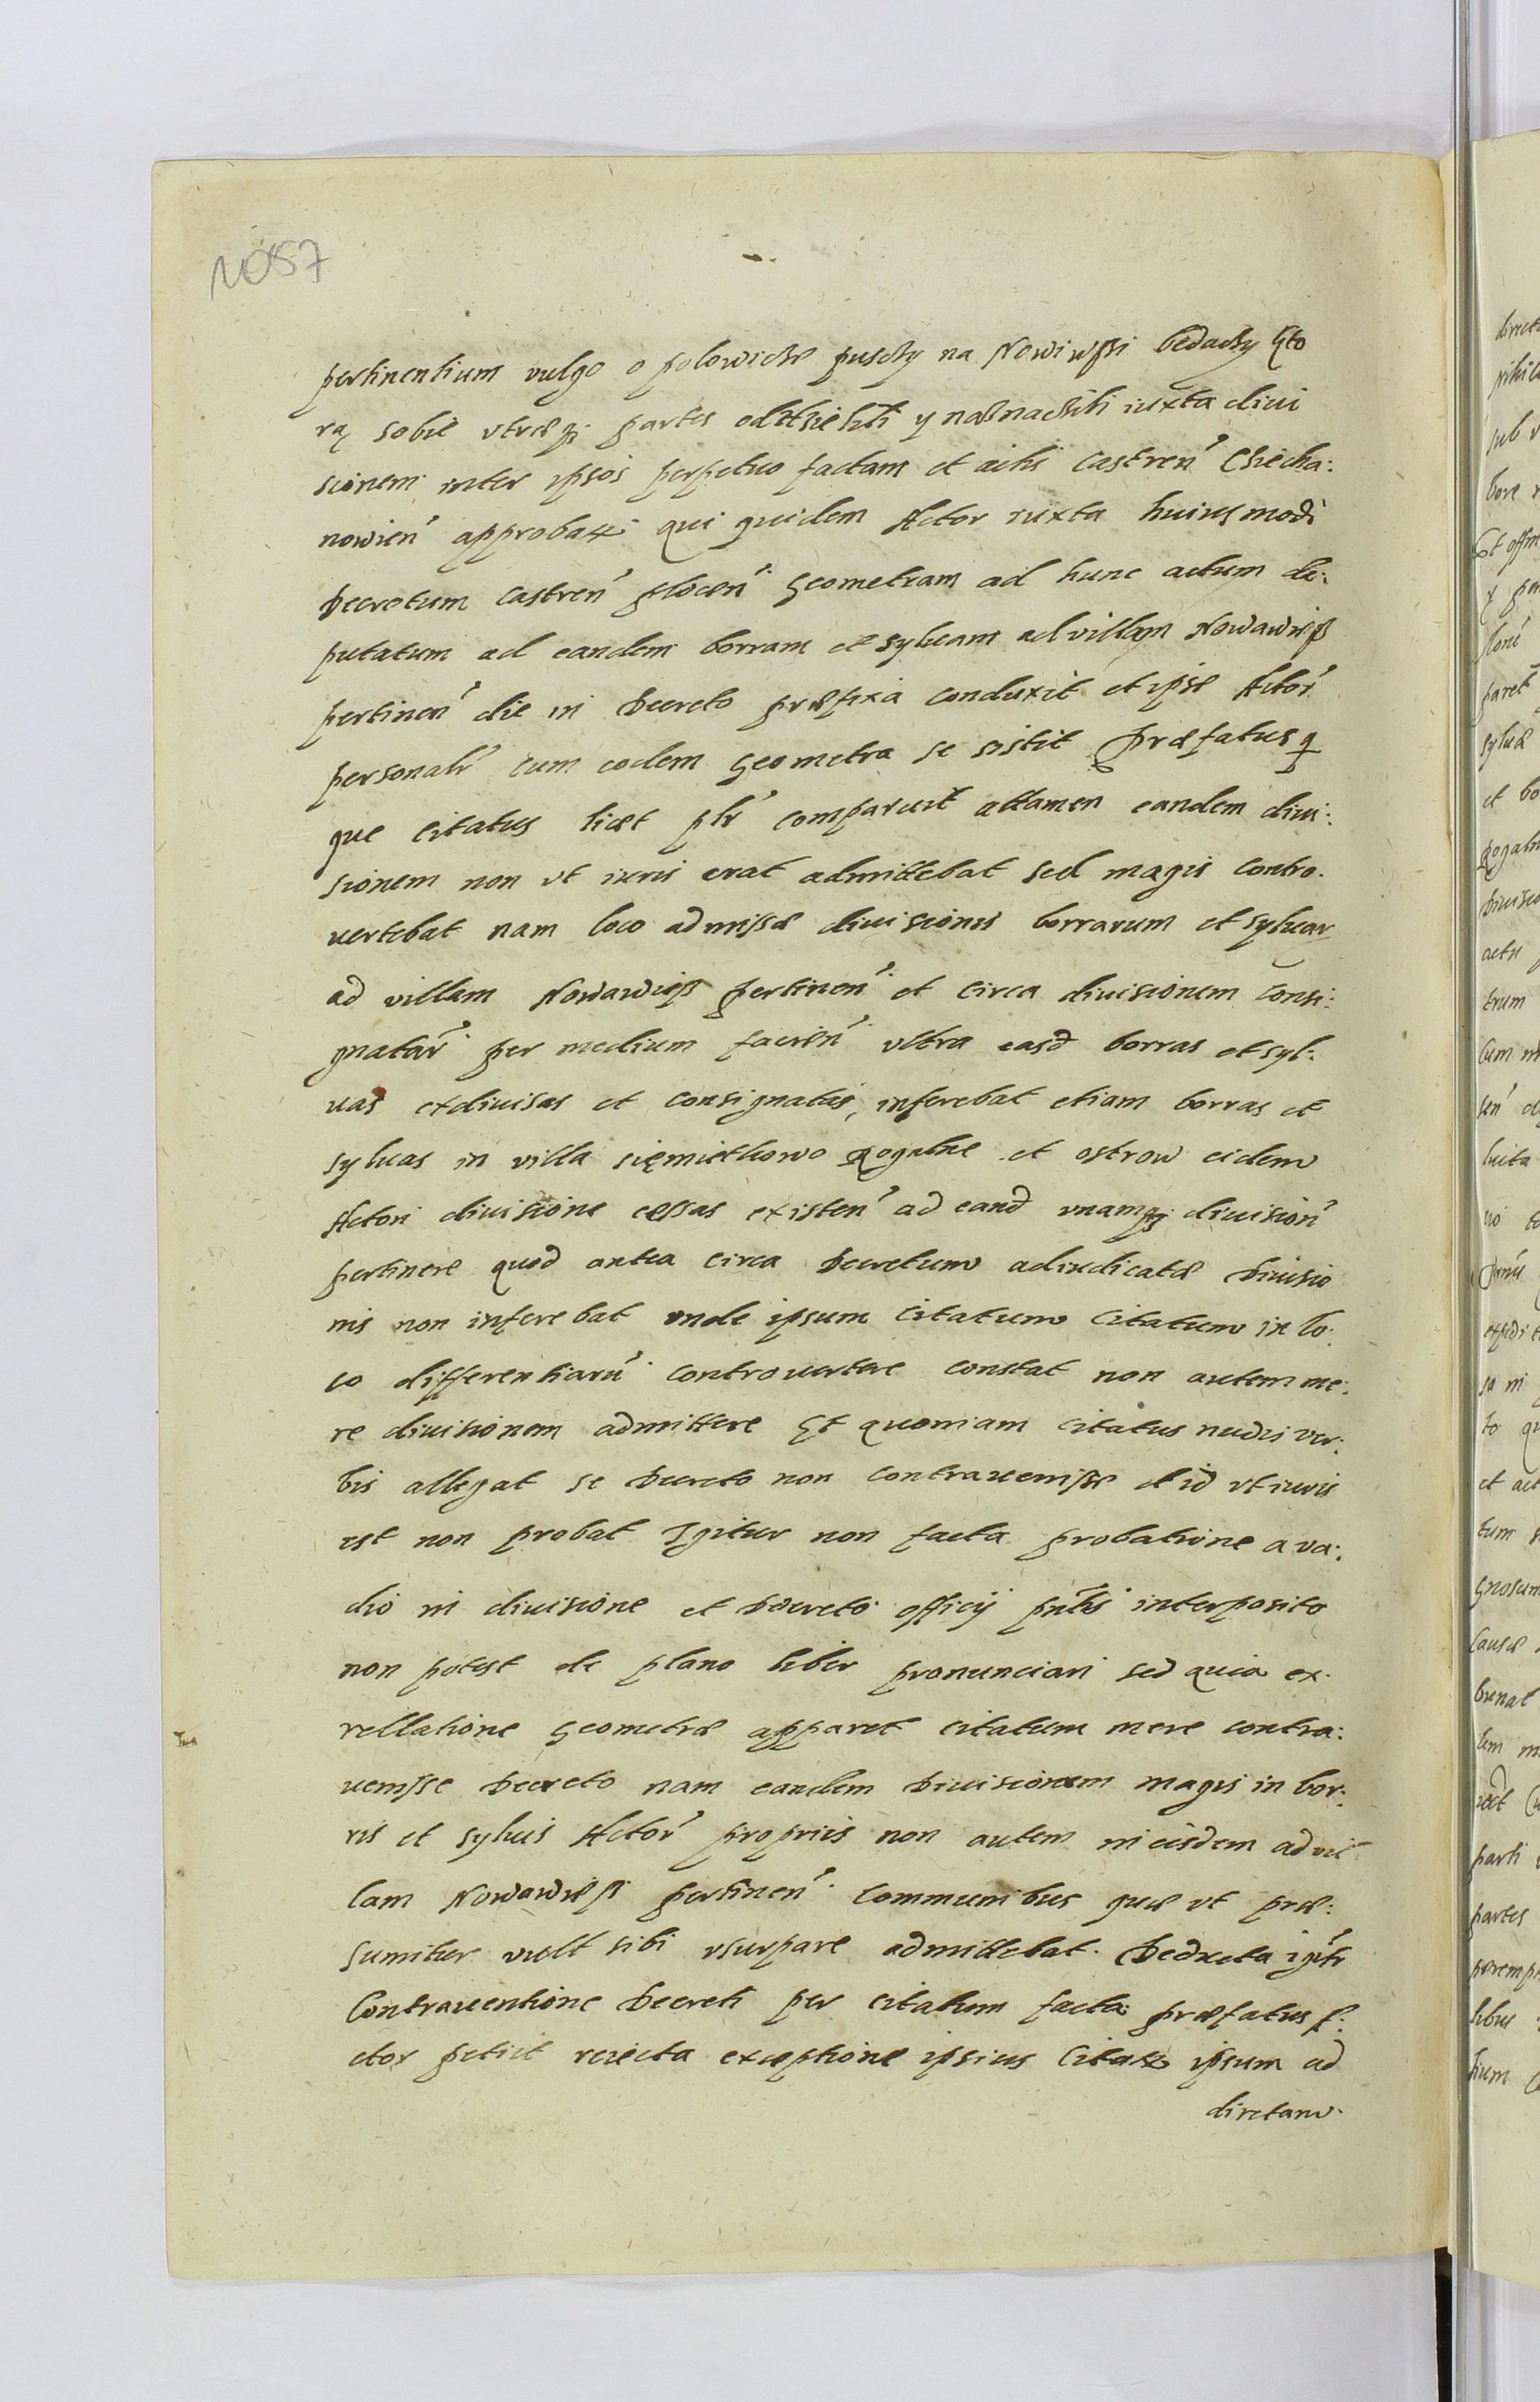 1057
pertinentium vulgo o polowicze pusczy na Nowiwssi bedaczy kto
rą sobie vtræq partes oddzielili y naßnaczili iuxta diui
sionem inter ipsos perpetuo factam et actis Castren Ciecha:
nowien approbatt qui quidem Actor iuxta huiusmodi
Decretum Castren plocen Geometram ad hunc actum de:
putatum ad eandem borram et syluam ad villam Nowawieß
pertinen die in Decreto præfixa conduxit et ipse Actor
personalr cum eodem Geometra se sistit Præfatus q
que Citatus licet plr comparuit attamen eandem diui:
sionem non vt iuris erat admittebat sed magis contro.
uertebat nam loco admissæ diuisionis borrarum et syluar
ad villam Nowawieß pertinen et circa diuisionem consi:
gnatar per medium facien vltra easd borras et syl:
uas exdiuisas et consignatas, inferebat etiam borras et
syluas in villa Sięmiethowo Rogalne et ostrow eidem
Actori diuisione cessas existen ad eand vnamq diuision
pertinere quod antea circa Decretum adiudicatæ Diuisio
nis non inferebat vnde ipsum Citatum Citatum in lo:
co differentiaru controuertere constat non autem me:
re diuisionem admittere Et quoniam Citatus nudis ver:
bis allegat se Decreto non contrauenisse et id vt iuris
est non probat Igitur non facta probatione a va:
dio in diuisione et Decreto officij pntis interposito
non potest de plano liber pronunciari sed quia ex
rellatione Geometræ apparet citatum mere contra:
uenisse Decreto nam eandem Diuisionem magis in bor:
ris et syluis Actor proprijs non autem in eisdem ad vil
lam Nowawieß pertinen communibus quæ vt præ:
sumitur vult sibi vsurpare admittebat. Deducta igitr
Contrauentione Decreti per citatum facta præfatus A:
ctor petiit reiecta exceptione ipsius Citatt ipsum ad
directam